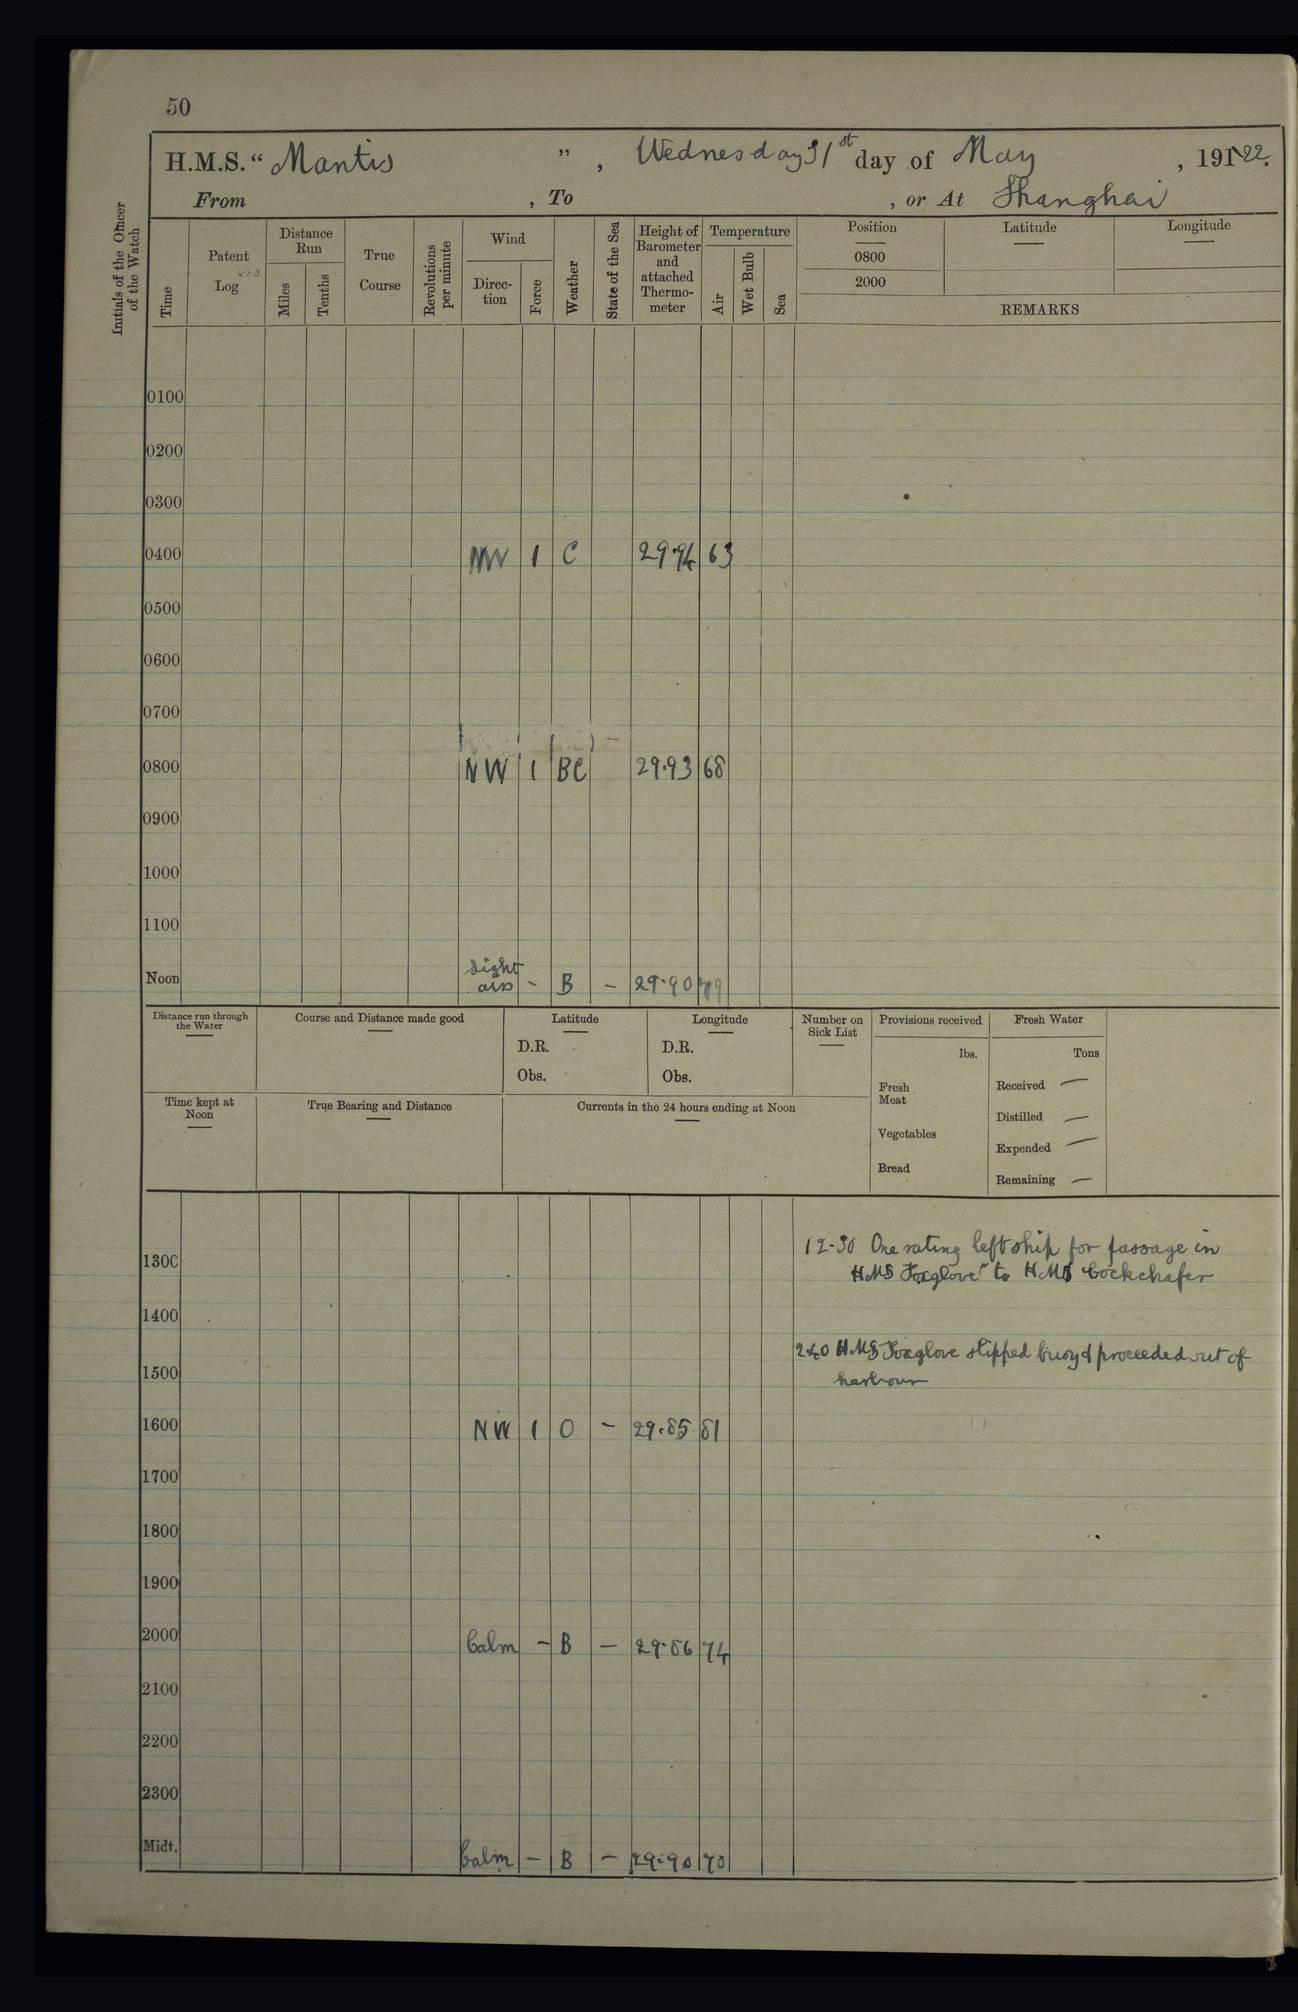 50
H.M.S. “ Mantis ” , Wednesday 31st day of May , 191 22.
From , To , or At Shanghai
Initials of the Officer of the Watch
Time
Patent Log
Distance Run
Miles
Tenths
True Course
Revolutions per minute
Wind
Direc-tion
Force
Weather
State of the Sea
Height of Barometer and attached Thermo-meter
Temperature
Air
Wet Bulb
Sea
Position
0800
2000
Latitude
Longitude
REMARKS
0100
0200
0300
0400 NW 1 C 29.94 63
0500
0600
0700
0800 NW 1 BC 29.93 68
0900
1000
1100
Noon Light airs - B - 29.90 79
Distance run through the Water
Course and Distance made good
Latitude
D.R.
Obs.
Longitude
D.R.
Obs.
Number on Sick List
Provisions received
lbs.
Fresh Meat
Vegetables
Bread
Fresh Water
Tons
Received —
Distilled —
Expended —
Remaining —
Time kept at Noon
True Bearing and Distance
Currents in the 24 hours ending at Noon
12-30 One rating left ship for passage in
1300 HMS Foxglove" to HMS Cockchafer
1400
2.40 HMS Foxglove slipped buoy & proceeded out of
1500 harbour
1600 NW 1 O - 29.85 81
1700
1800
1900
2000 Calm - B - 29.86 74
2100
2200
2300
Midt. Calm - B - 29.90 70